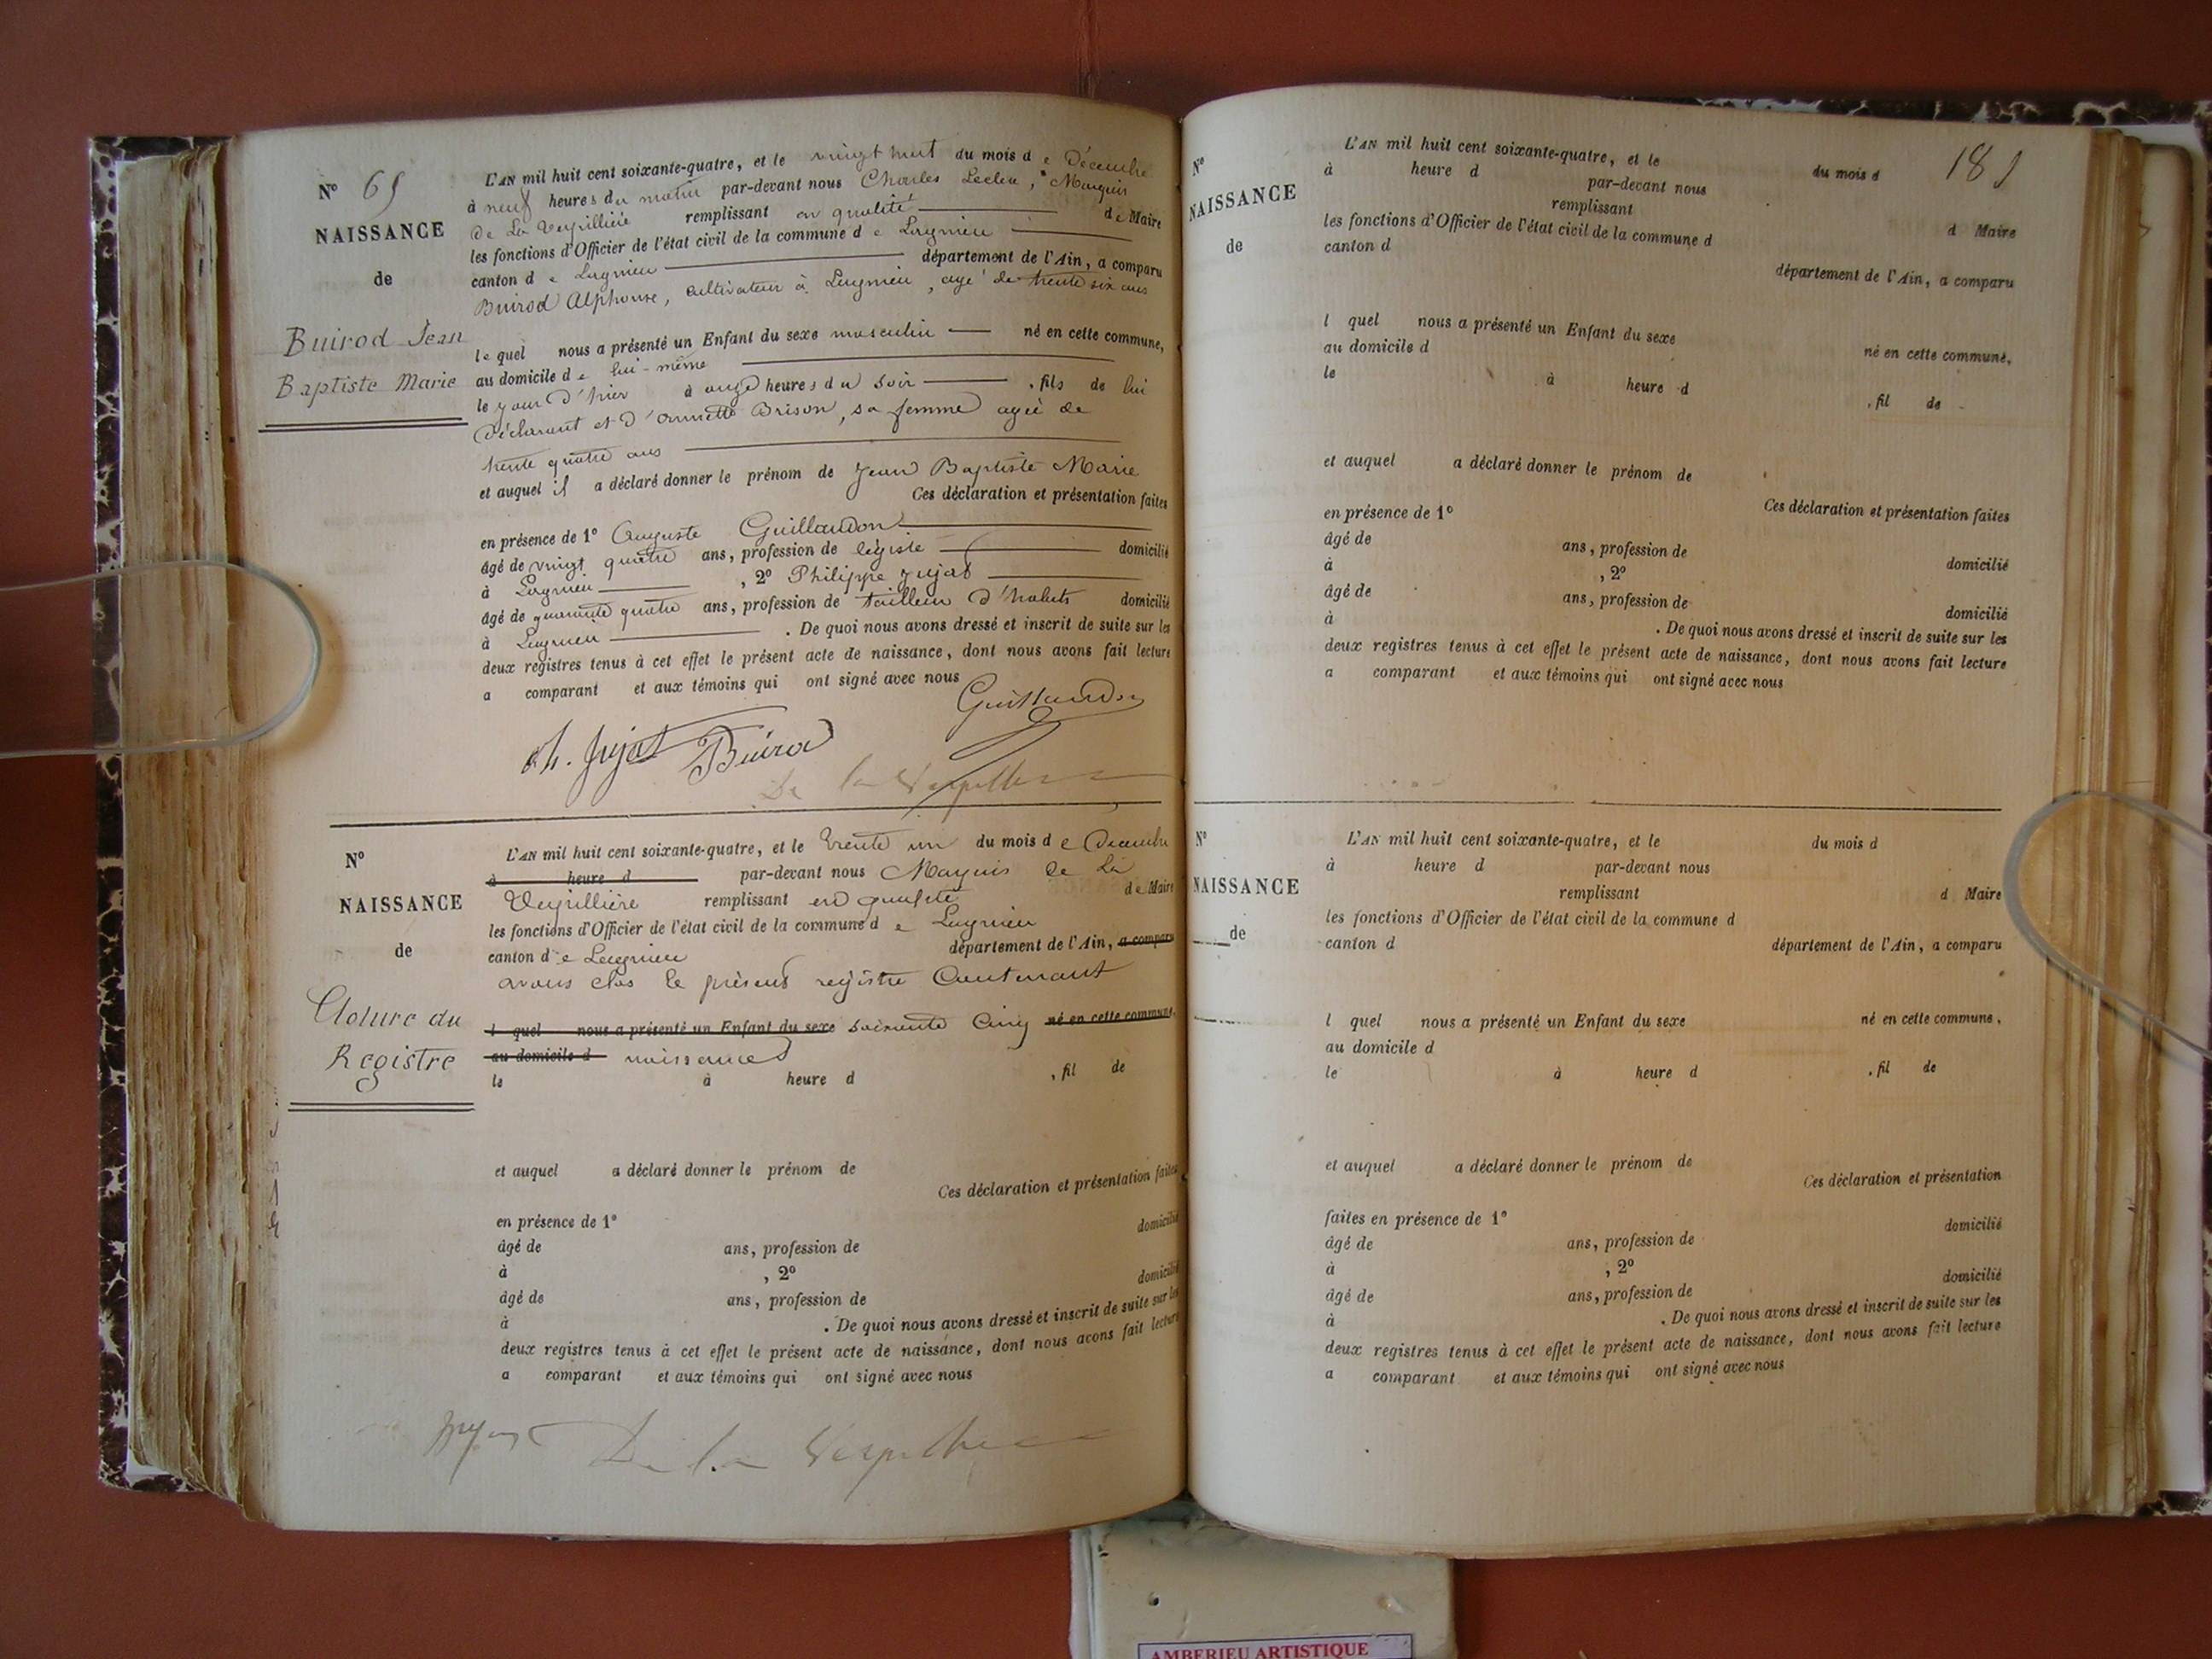 N° 65
NAISSANCE
de
Buirod Jean
Baptiste Marie
L'AN mil huit cent soixante-quatre, et le vingt huit du mois de Décembre
à neuf heures du matin par-devant nous Charles Leclerc, Marquis
De La Verpillière remplissant en qualité de Maire
les fonctions d'Officier de l'état civil de la commune de Lagnieu
canton de Lagnieu département de l'Ain, a comparu
Buirod Alphonse, cultivateur à Lagnieu, agé de trente six ans
lequel nous a présenté un Enfant du sexe masculin né en cette commune,
au domicile de lui-même
le jour d'hier à onze heures du soir, fils de lui
Déclarant et d'annette Brison, sa femme agée de
trente quatre ans
et auquel il a déclaré donner le prénom de Jean Baptiste Marie
Ces déclaration et présentation faites
en présence de 1° Auguste Guillaudon
âgé de vingt quatre ans, profession de légiste domicilié
à Lagnieu, 2° Philippe Jujat
âgé de quarante quatre ans, profession de tailleur d'habits domicilié
à Lagnieu. De quoi nous avons dressé et inscrit de suite sur les
deux registres tenus à cet effet le présent acte de naissance, dont nous avons fait lecture
a comparant et aux témoins qui ont signé avec nous
Guillaudon
Ph. Jujat Buirod
De la Verpilliere
N°
NAISSANCE
de
Cloture du
Registre
L'AN mil huit cent soixante-quatre, et le trente un du mois de Décembre
à heure d par-devant nous Marquis de La
Verpillière remplissant en qualité de Maire
les fonctions d'Officier de l'état civil de la commune de Lagnieu
canton de Lagnieu département de l'Ain, a comparu
avons clos le présent registre Contenant
l quel nous a présenté un Enfant du sexe soixante Cinq né en cette commune,
au domicile d naissances
le à heure d , fil de
et auquel a déclaré donner le prénom de
Ces déclaration et présentation faites
en présence de 1°
domicilié
âgé de ans, profession de
à , 2°
domicilié
âgé de ans, profession de
à . De quoi nous avons dressé et inscrit de suite sur les
deux registres tenus à cet effet le présent acte de naissance, dont nous avons fait lecture
a comparant et aux témoins qui ont signé avec nous
De la Verpilliere
181
N°
NAISSANCE
de
L'AN mil huit cent soixante-quatre, et le du mois d
à heure d par-devant nous
remplissant d Maire
les fonctions d'Officier de l'état civil de la commune d
canton d département de l'Ain, a comparu
l quel nous a présenté un Enfant du sexe né en cette commune,
au domicile d
le à heure d , fil de
et auquel a déclaré donner le prénom de
Ces déclaration et présentation faites
en présence de 1°
âgé de ans, profession de domicilié
à , 2°
âgé de ans, profession de domicilié
à . De quoi nous avons dressé et inscrit de suite sur les
deux registres tenus à cet effet le présent acte de naissance, dont nous avons fait lecture
a comparant et aux témoins qui ont signé avec nous
N°
NAISSANCE
de
L'AN mil huit cent soixante-quatre, et le du mois d
à heure d par-devant nous
remplissant d Maire
les fonctions d'Officier de l'état civil de la commune d
canton d département de l'Ain, a comparu
l quel nous a présenté un Enfant du sexe né en cette commune,
au domicile d
le à heure d , fil de
et auquel a déclaré donner le prénom de
Ces déclaration et présentation
faites en présence de 1° domicilié
âgé de ans, profession de
à , 2° domicilié
âgé de ans, profession de
à . De quoi nous avons dressé et inscrit de suite sur les
deux registres tenus à cet effet le présent acte de naissance, dont nous avons fait lecture
a comparant et aux témoins qui ont signé avec nous
AMBERIEU ARTISTIQUE